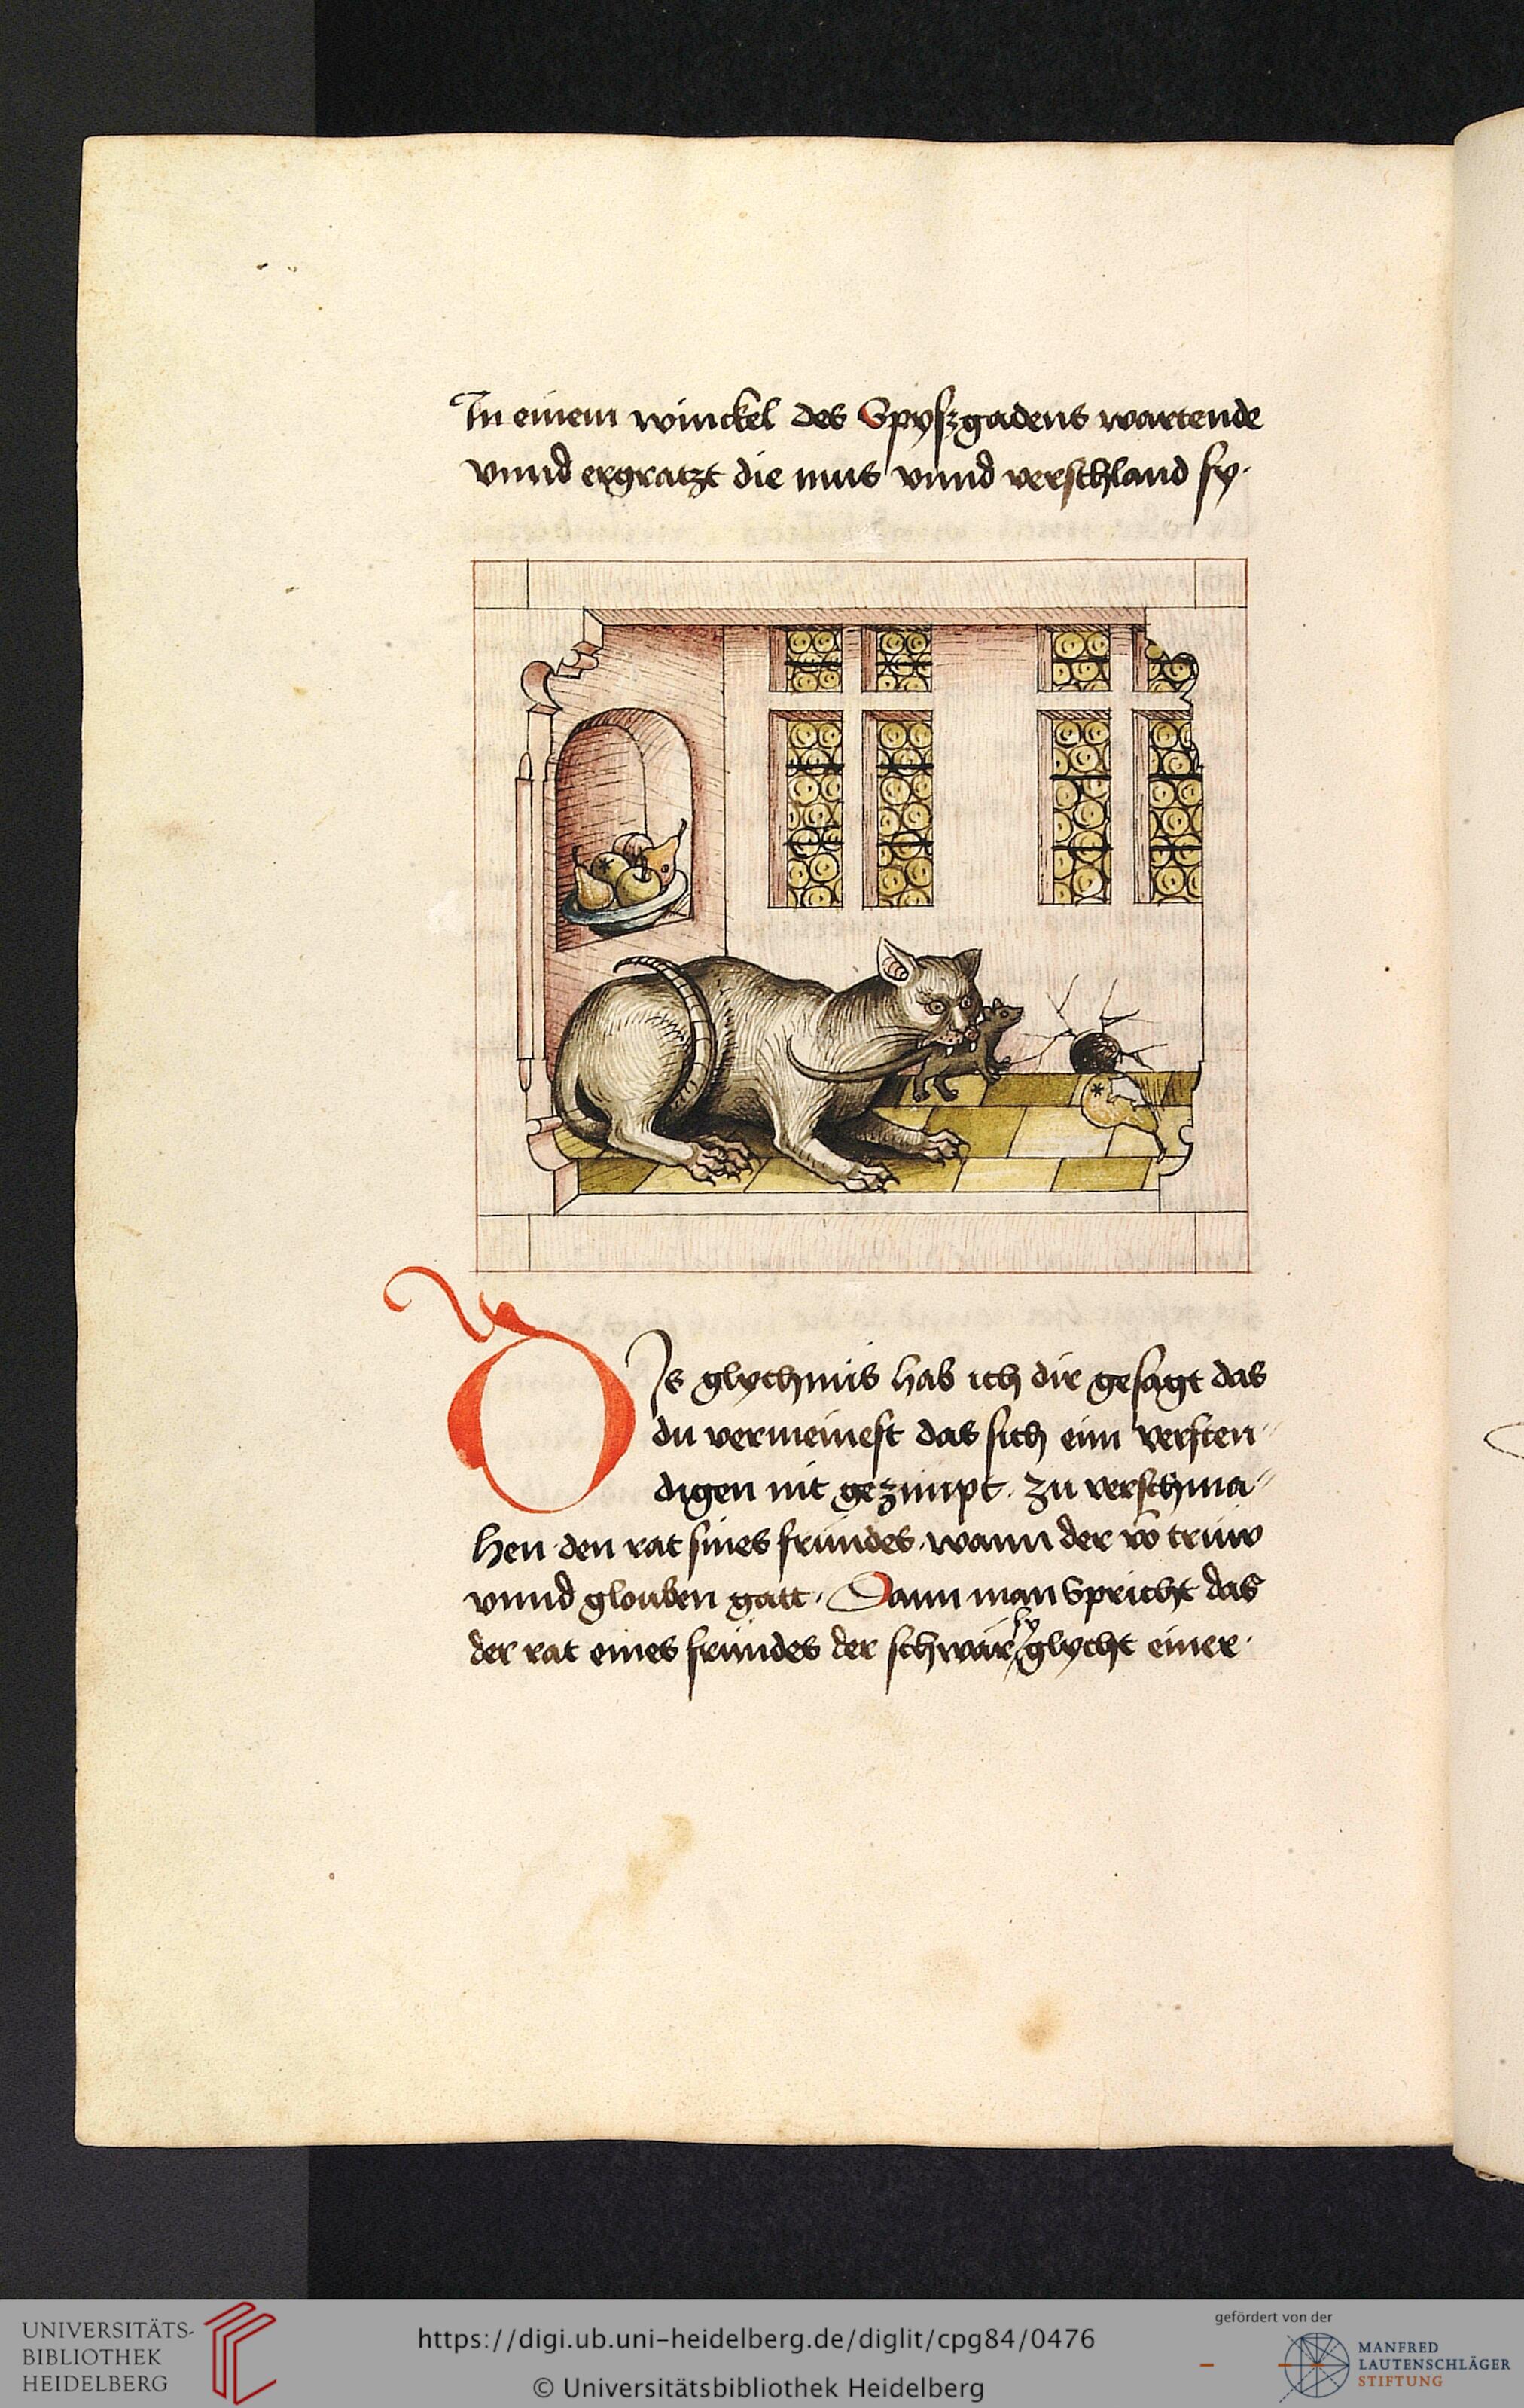 In einem winckel des Spyszgadens wartende
vnnd ergratzt die mus vnnd verschland sy.
DIs glychnis hab ich dir gesagt das
du vermeinest das sich eim versten//
digen nit gezimpt. zu verschma//
hen den rat sines frundes. wann der vō truw
vnnd glouben gatt. Dann man Spricht das
der rat eines frundes der schwar sy glycht einer.
UNIVERSITÄTS-
BIBLIOTHEK
HEIDELBERG
https://digi.ub.uni-heidelberg.de/diglit/cpg84/0476
© Universitätsbibliothek Heidelberg
gefördert von der
MANFRED
LAUTENSCHLÄGER
STIFTUNG